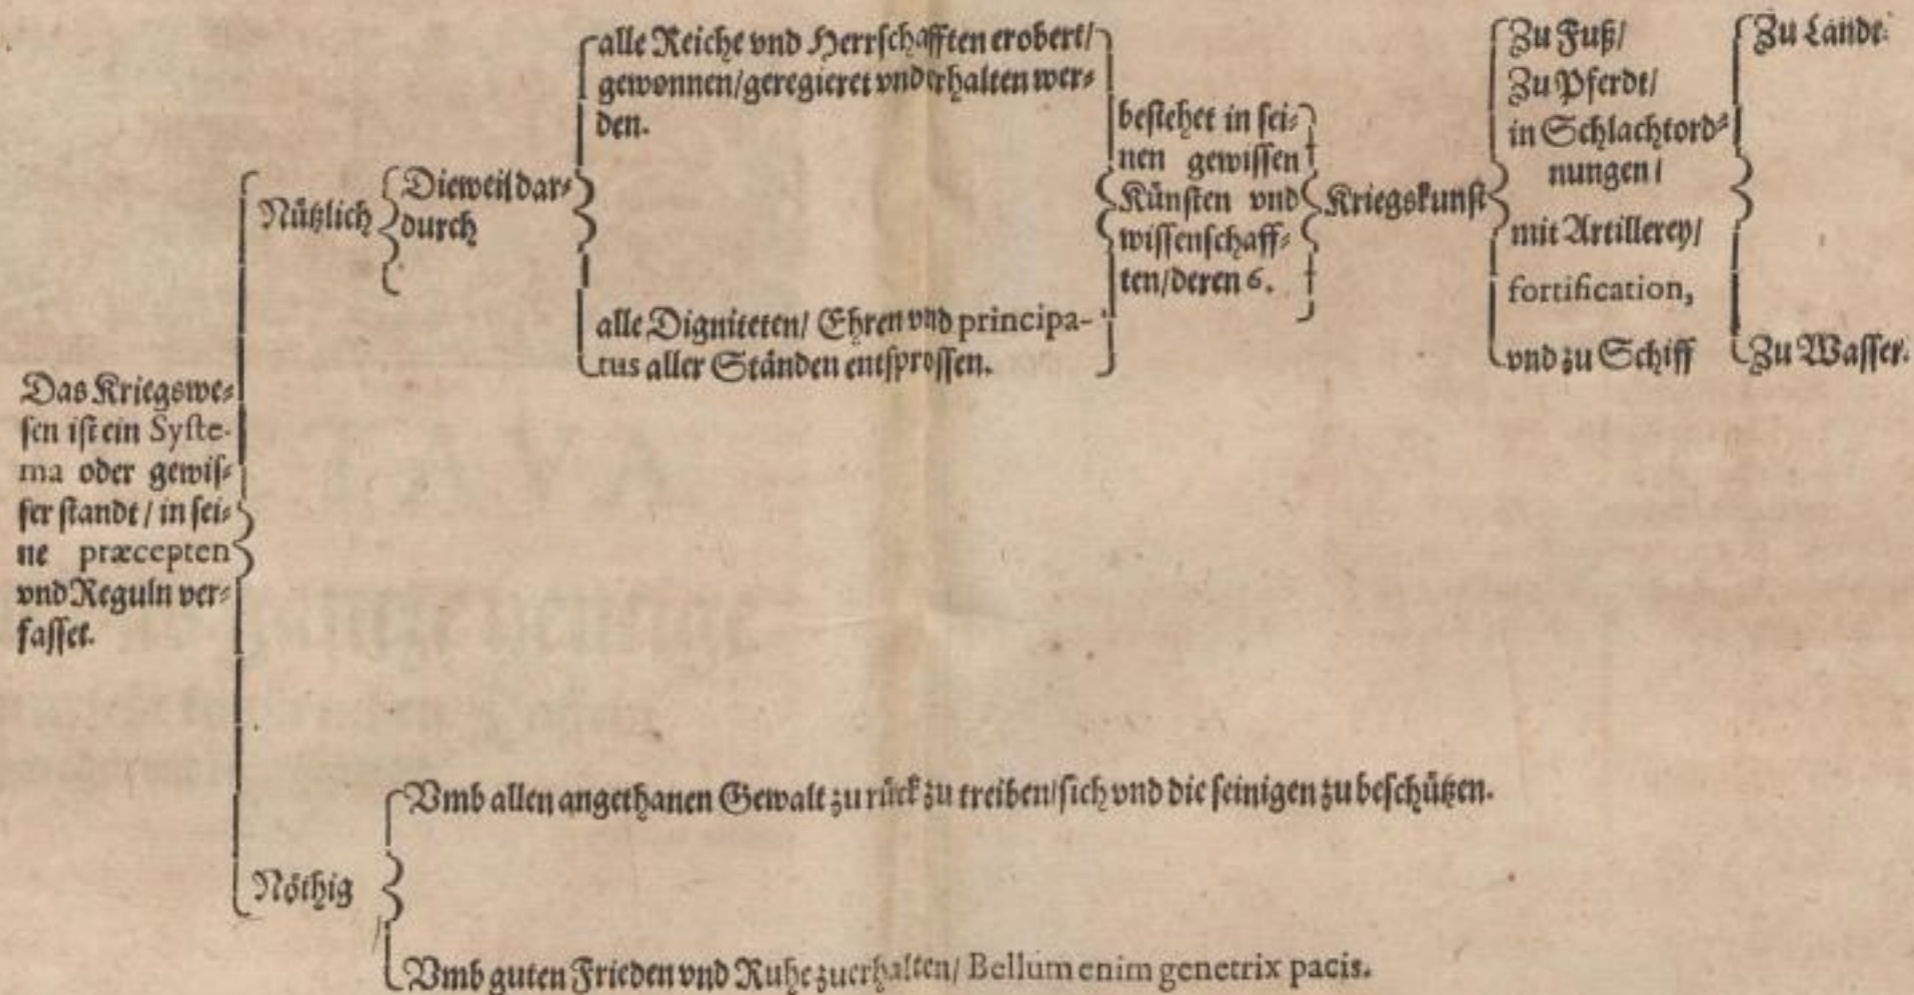 Das Kriegswe⸗
sen ist ein Syste-
ma oder gewis⸗
ser standt / in sei⸗
ne præcepten
vnd Reguln ver⸗
fasset.
Nützlich
Dieweil dar⸗
durch
alle Reiche vnd Herrschafften erobert/
gewonnen/geregieret vnd erhalten wer⸗
den.
alle Digniteten/ Ehren vnd principa-
tus aller Ständen entsprossen.
bestehet in sei⸗
nen gewissen
Künsten vnd
wissenschaff⸗
ten/deren 6.
Kriegskunst
Zu Fuß/
Zu Pferdt/
in Schlachtord⸗
nungen/
mit Artillerey/
fortification,
vnd zu Schiff
Zu Landt.
Zu Wasser.
Nöthig
Vmb allen angethanen Gewalt zu rück zu treiben/sich vnd die seinigen zu beschützen.
Vmb guten Frieden vnd Ruhe zuerhalten/ Bellum enim genetrix pacis.